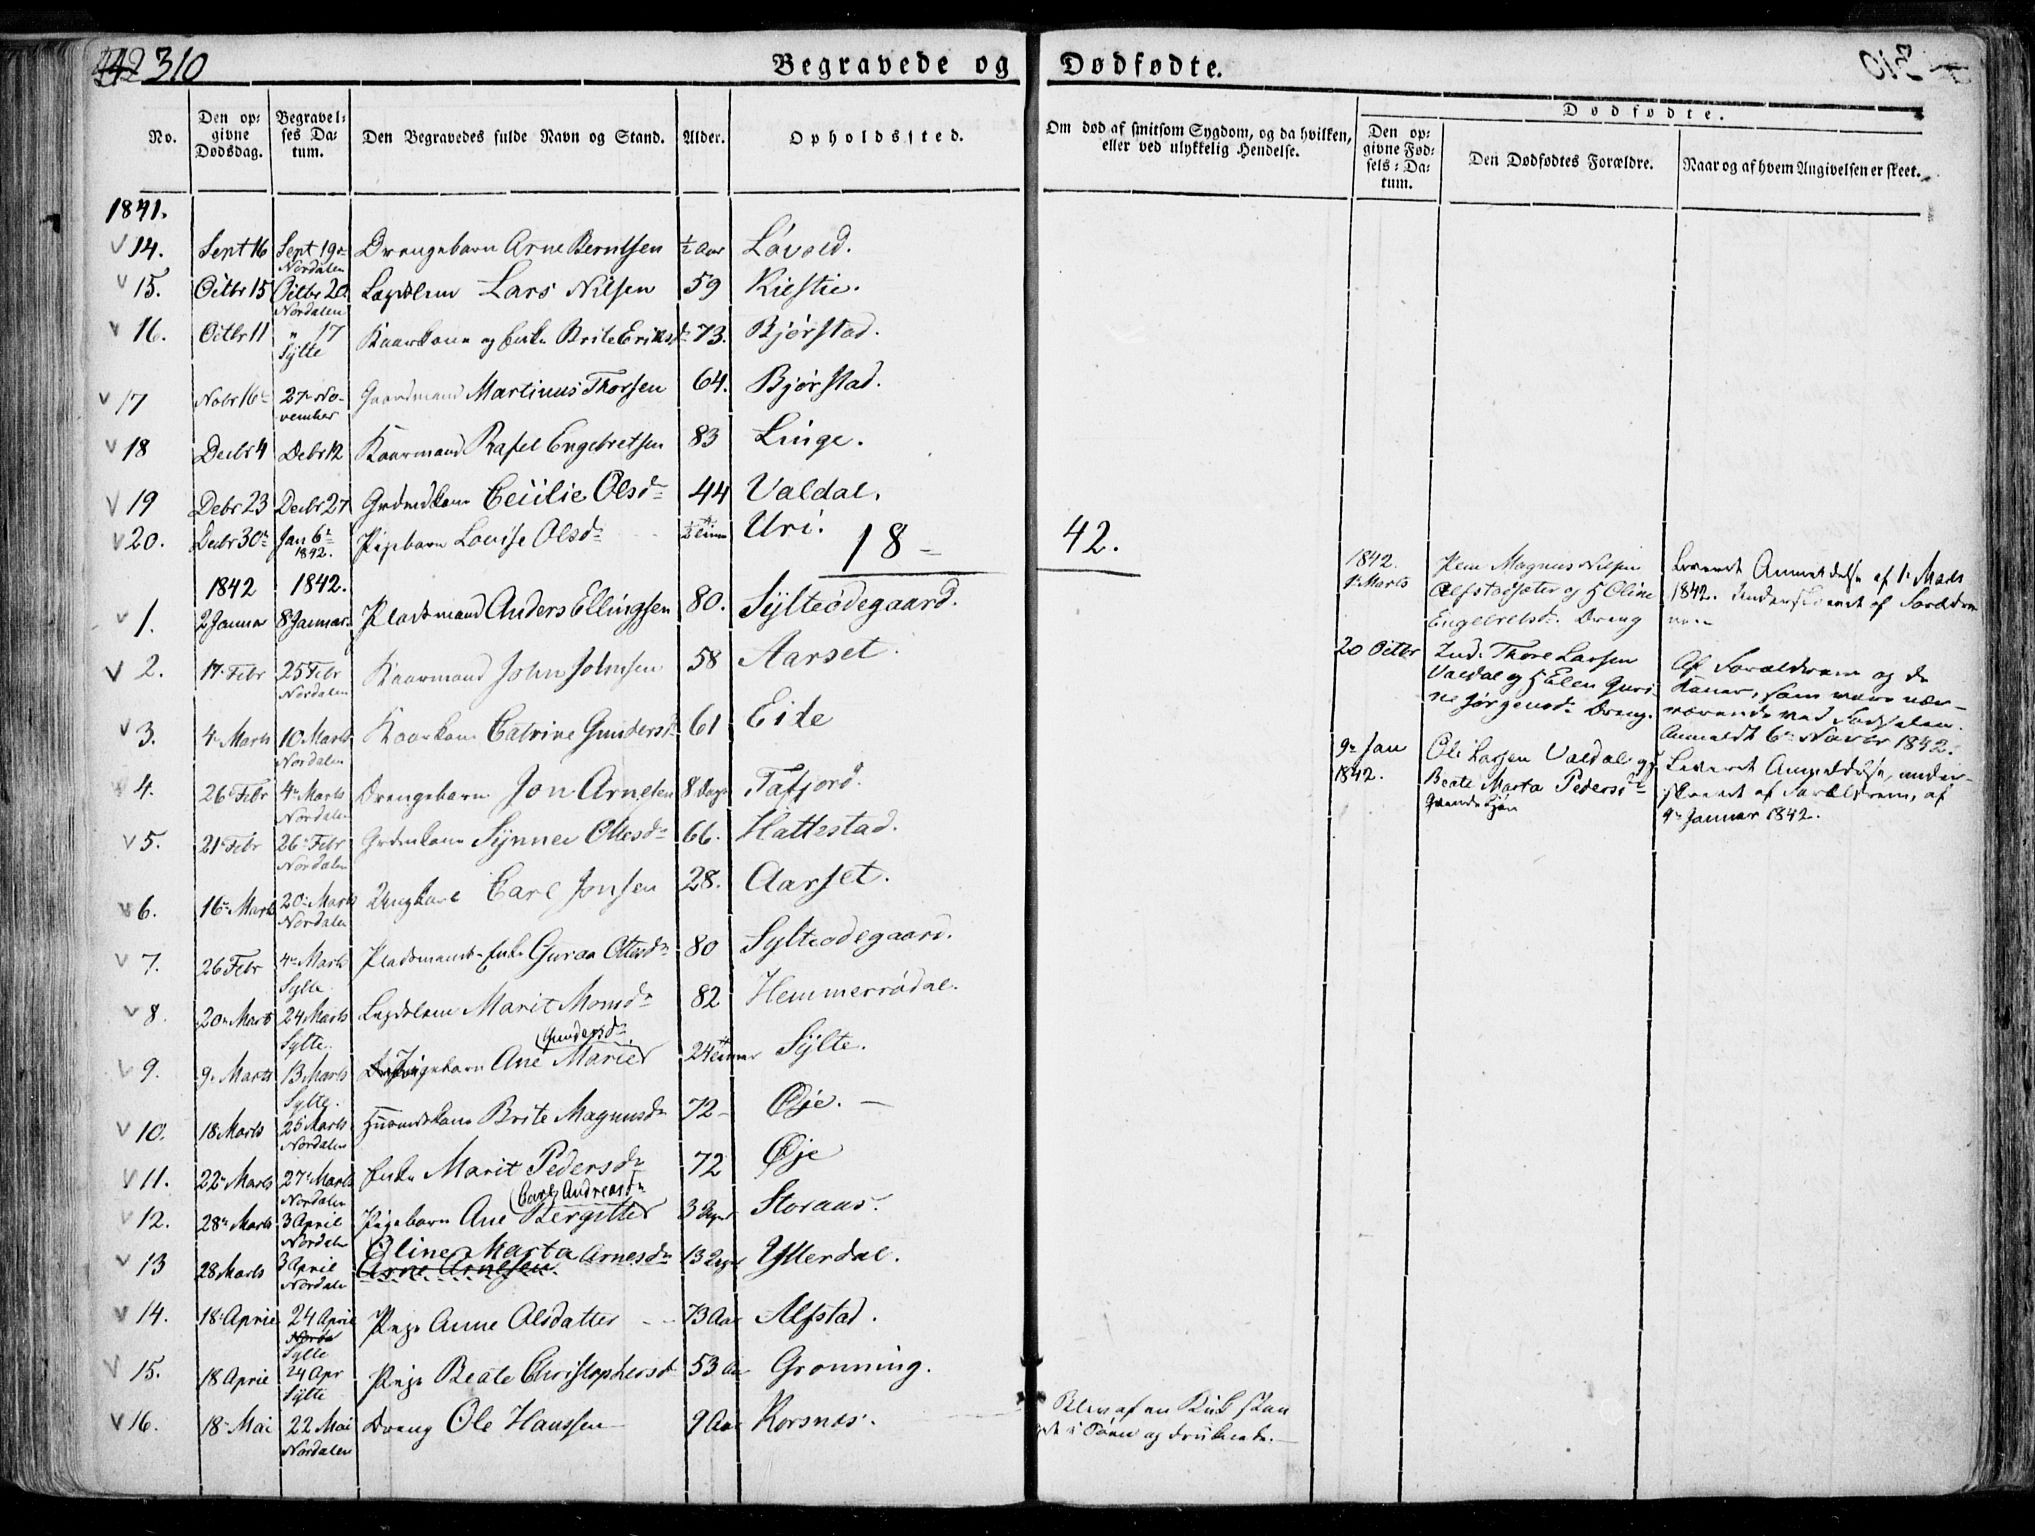 310
Begravede og Dødfødte.
No.
Den opgivne Dødsdag.
Begravelses Datum.
Den Begravedes fulde Navn og Stand.
Alder.
Opholdssted.
Om død af smitsom Sygdom, og da hvilken, eller ved ulykkelig Hendelse.
Dødfødte.
Den opgivne Fødsels-Datum.
Den Dødfødtes Forældre.
Naar og af hvem Angivelsen er skeet.
1841.
14. Sept 16 Sept 19 Nordalen Drengebarn Arne Berntsen ½ Aar Løvold.
15. Octbr 15 Octbr 20 Nordalen Lægdslem Lars Nilsen 59 Kilstie.
16. Octbr 11 " 17 Sylte Kaarkone og Enke Brite Eriksd 73. Bjørstad.
17 Nobr 16 27 November Gaardmand Martinus Thorsen 64. Bjørstad.
18 Decbr 4 Debr 12 Kaarmand Rasel Engebretsen 83 Linge.
19 Debr 23 Decbr 27 Grdmdkone Cecilie Olsd 44 Valdal.
20. Decbr 30 Jan 6 1842. Pigebarn Lovise Olsd Uri.
1842 1842. 18 42.
1. 2 Januar 8 Januar Pladsmand Anders Ellingsen 80. Sylteødegaard.
2. 17 Febr 25 Febr Nordalen Kaarmand John Johnsen 58 Aarset.
3. 4 Marts 10 Marts Nordalen Kaarkone Catrine Gundersd 61 Eide
4. 26 Febr 4 Marts Nordalen Drengebarn Jon Arnesen 8 Dage Tafjord.
5. 21 Febr 26 Febr Nordalen Grdmkone Synnev Ottesd 66. Hattestad.
6. 16 Marts 20 Marts Nordalen Ungkarl Carl Jonsen 28. Aarset.
7. 26 Febr 4 Marts Sylte Pladsmands Enke Guraa Ottesd 80 Sylteødegaard.
8. 20 Marts 24 Marts Sylte. Lægdslem Marit Monsd 82 Hemmerrødal.
Gundersd
9. 9 Marts 13 Marts Sylte. Pigebarn Ane Marie 24 Timer Sylte.
10. 18 Marts 25 Marts Nordalen Huusmdskone Brite Magnusd 72 Øje.
11. 22 Marts 27 Marts Nordalen Enke Marit Pedersd 72 Øje
Carl Andreasd
12. 28 Marts 3 April Nordalen Pigebarn Ane Bergitte 3 Dage Storaas.
13 28 Marts 3 April Nordalen Oline Marta Arnesd 13 Dage Ytterdal.
Arne Arnesen
14. 18 April 24 April Sylte Pige Anne Olsdatter 73 Aar Alfstad.
15. 18 April 24 Apr Sylte Pige Beate Christophersd 53 Aar Grønning.
16. 18 Mai 22 Mai Nordalen Dreng Ole Hanssen 9 Aar Korsnæs.
Blev af en Kulk
og druknede.
1842. 1 Marts
Magnus Nilsen
Alfstadsæter og H Oline
Engebretsd. Dreng
Leveret Anmeldelse af 1 Marts
1842. Underskrevet af Forældrene
20 Octbr
Inds. Thore Larsen
Valdal og H Elen Guri-
ne Jørgensd. Dreng.
Af Forældrene og de
Koner, som vare nær-
værende ved Fødselen.
Anmeldt 6 Novbr 1842.
9 Jan 1842.
Ole Larsen Valdal og
Beate Marta Pedersd
Leveret Anmeldelse, under-
skrevet af Forældrene, af
9 Januar 1842.